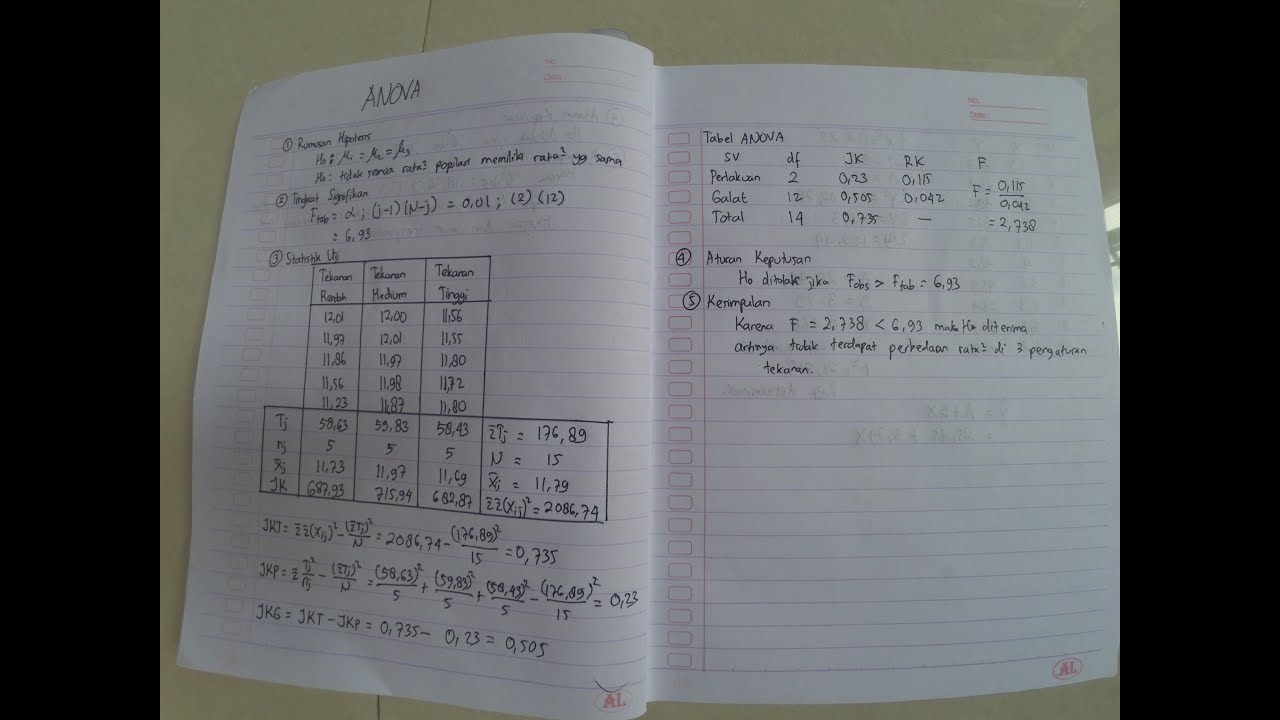 No.
Date :
ANOVA
① Rumusan Hipotesis
Ho : μ₁ = μ₂ = μ₃
Ho : tidak semua rata² populasi memiliki rata² yg sama
② Tingkat Signifikan
Ftab = α ; (j-1) (N-j) = 0,01 ; (2) (12)
= 6,93
③ Statistik Uji
Tekanan Rendah Tekanan Medium Tekanan Tinggi
12,01 12,00 11,56
11,97 12,01 11,55
11,86 11,97 11,80
11,56 11,98 11,72
11,23 11,87 11,80
Tj 58,63 59,83 58,43 ΣTj = 176,89
nj 5 5 5 N = 15
x̄j 11,73 11,97 11,69 x̄j = 11,79
JK 687,93 715,94 682,87 ΣΣ(Xij)² = 2086,74
JKT = ΣΣ(Xij)² - (ΣTj)²/N = 2086,74 - (176,89)²/15 = 0,735
JKP = Σ Tj²/nj - (ΣTj)²/N = (58,63)²/5 + (59,83)²/5 + (58,43)²/5 - (176,89)²/15 = 0,23
JKG = JKT - JKP = 0,735 - 0,23 = 0,505
AL
No.
Date :
Tabel ANOVA
SV df JK RK F
Perlakuan 2 0,23 0,115 F = 0,115/0,042
Galat 12 0,505 0,042
Total 14 0,735 — = 2,738
④ Aturan Keputusan
Ho ditolak jika Fobs > Ftab = 6,93
⑤ Kesimpulan
Karena F = 2,738 < 6,93 maka Ho diterima
artinya tidak terdapat perbedaan rata² di 3 pengaturan
tekanan.
AL